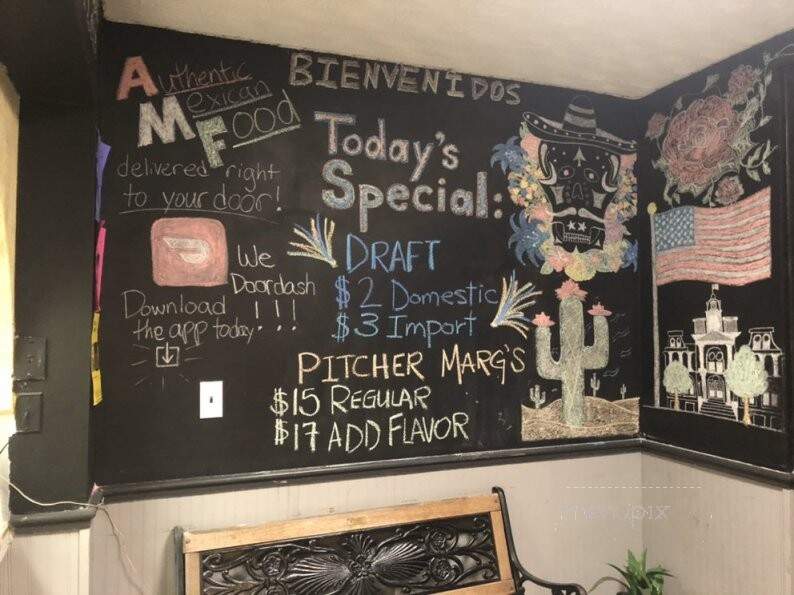 BIENVENIDOS
Authentic
Mexican
Food
delivered right
to your door!
We
Doordash
!!!
Download
the app today
Today's
Special:
DRAFT
$2 Domestic
$3 Import
PITCHER MARG'S
$15 REGULAR
$17 ADD FLAVOR
menupix